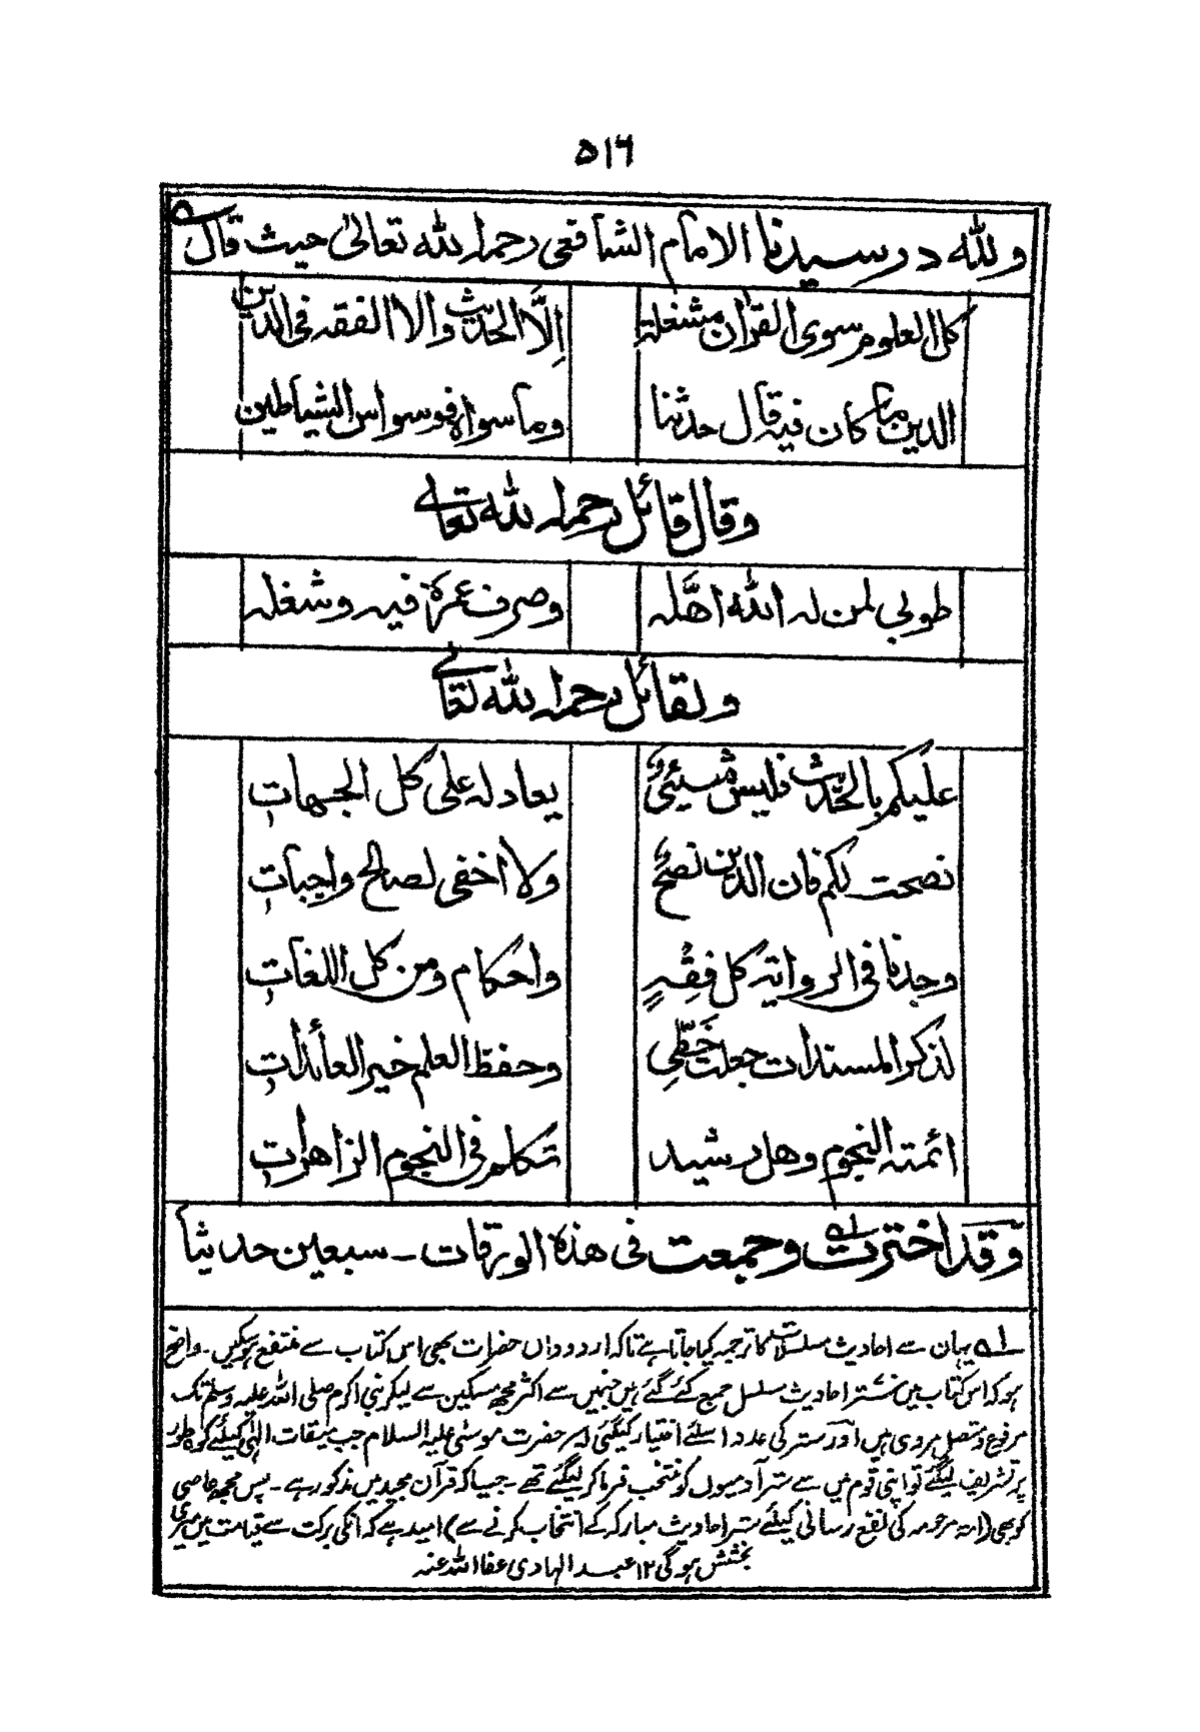 ۵۱۶
وللہ در سیدنا الامام الشافعی رحمہ اللہ تعالیٰ حیث قال
کل العلوم سوی القرآن مشغلۃ    اِلَّا الحدیث والا الفقہ فی الدین
الدین ما کان فیہ قال حدثنا    وما سواہ فوسواس الشیاطین
وقال قائل رحمہ اللہ تعالے
طوبی لمن لہ اللہ اھَّلہ    وصرف عمرہ فیہ وشغلہ
ولقائل رحمہ اللہ تعالے
علیکم بالحدیث فلیس شیئیٌ    یعادلہ علی کل الجہاتِ
نصحت لکم فان الدین نصحٌ    ولا اخفی لصالح واجباتِ
وجدنا فی الروایۃ کل فِقْہٍ    واحکام ومن کل اللغاتِ
لذکر المسندات جعلت حَظِّی    وحفظ العلم خیر العائداتِ
ائمتہ النجوم وھل رشید    تکلم فی النجوم الزاھراتِ
وقد اخترت لہ وجمعت فی ھذہ الورقات ۔ سبعین حدیثاً
لہ یہان سے احادیث مسلسلات کا ترجمہ کیا جاتا ہے تاکہ اردوداں حضرات بھی اس کتاب سے منتفع ہوسکیں ۔ واضح
ہو کہ اس کتاب میں ستر احادیث مسلسل جمع کئے گئے ہیں جنہیں سے اکثر مجھ مسکین سے لیکر نبی اکرم صلی اللہ علیہ وسلم تک
مرفوع ومتصل مروی ہیں اور ستر کی عدد اسلئے اختیار کیگئی کہ حضرت موسٰی علیہ السلام جب میقات الٰہی کیلئے کوہ طور
پر تشریف لیگئے تو اپنی قوم میں سے ستر آدمیوں کو منتخب فرما کر لیگئے تھے ۔ جیسا کہ قرآن مجید میں مذکور ہے ۔ پس مجھ عاصی
کو بھی (امۃ مرحومہ کی نفع رسانی کیلئے ستر احادیث مبارکہ کے انتخاب کرنے سے) امید ہے کہ انکی برکت سے قیامت میں میری
بخشش ہوگی ۱۲ عبد الہادی عفا اللہ عنہ